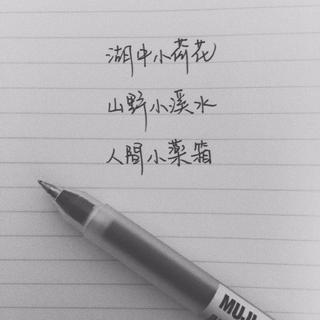 湖中小荷花
山野小溪水
人間小薬箱
MUJI